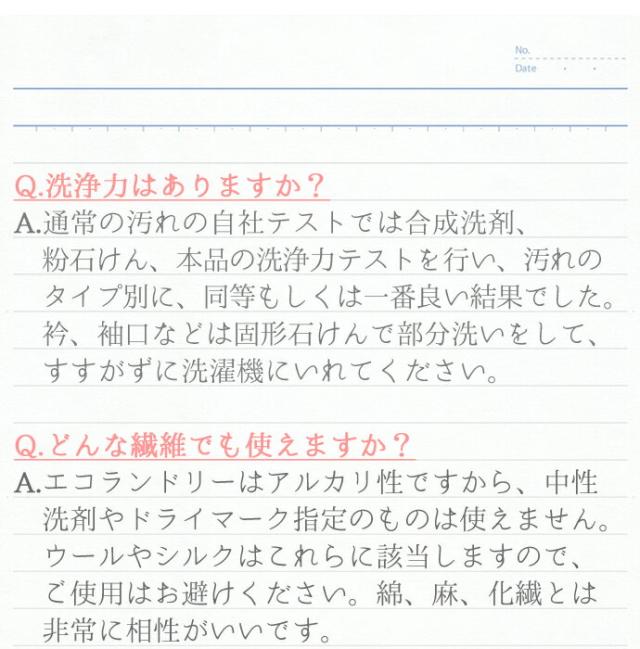 No.
Date
Q.洗浄力はありますか？
A.通常の汚れの自社テストでは合成洗剤、
粉石けん、本品の洗浄力テストを行い、汚れの
タイプ別に、同等もしくは一番良い結果でした。
衿、袖口などは固形石けんで部分洗いをして、
すすがずに洗濯機にいれてください。
Q.どんな繊維でも使えますか？
A.エコランドリーはアルカリ性ですから、中性
洗剤やドライマーク指定のものは使えません。
ウールやシルクはこれらに該当しますので、
ご使用はお避けください。綿、麻、化繊とは
非常に相性がいいです。